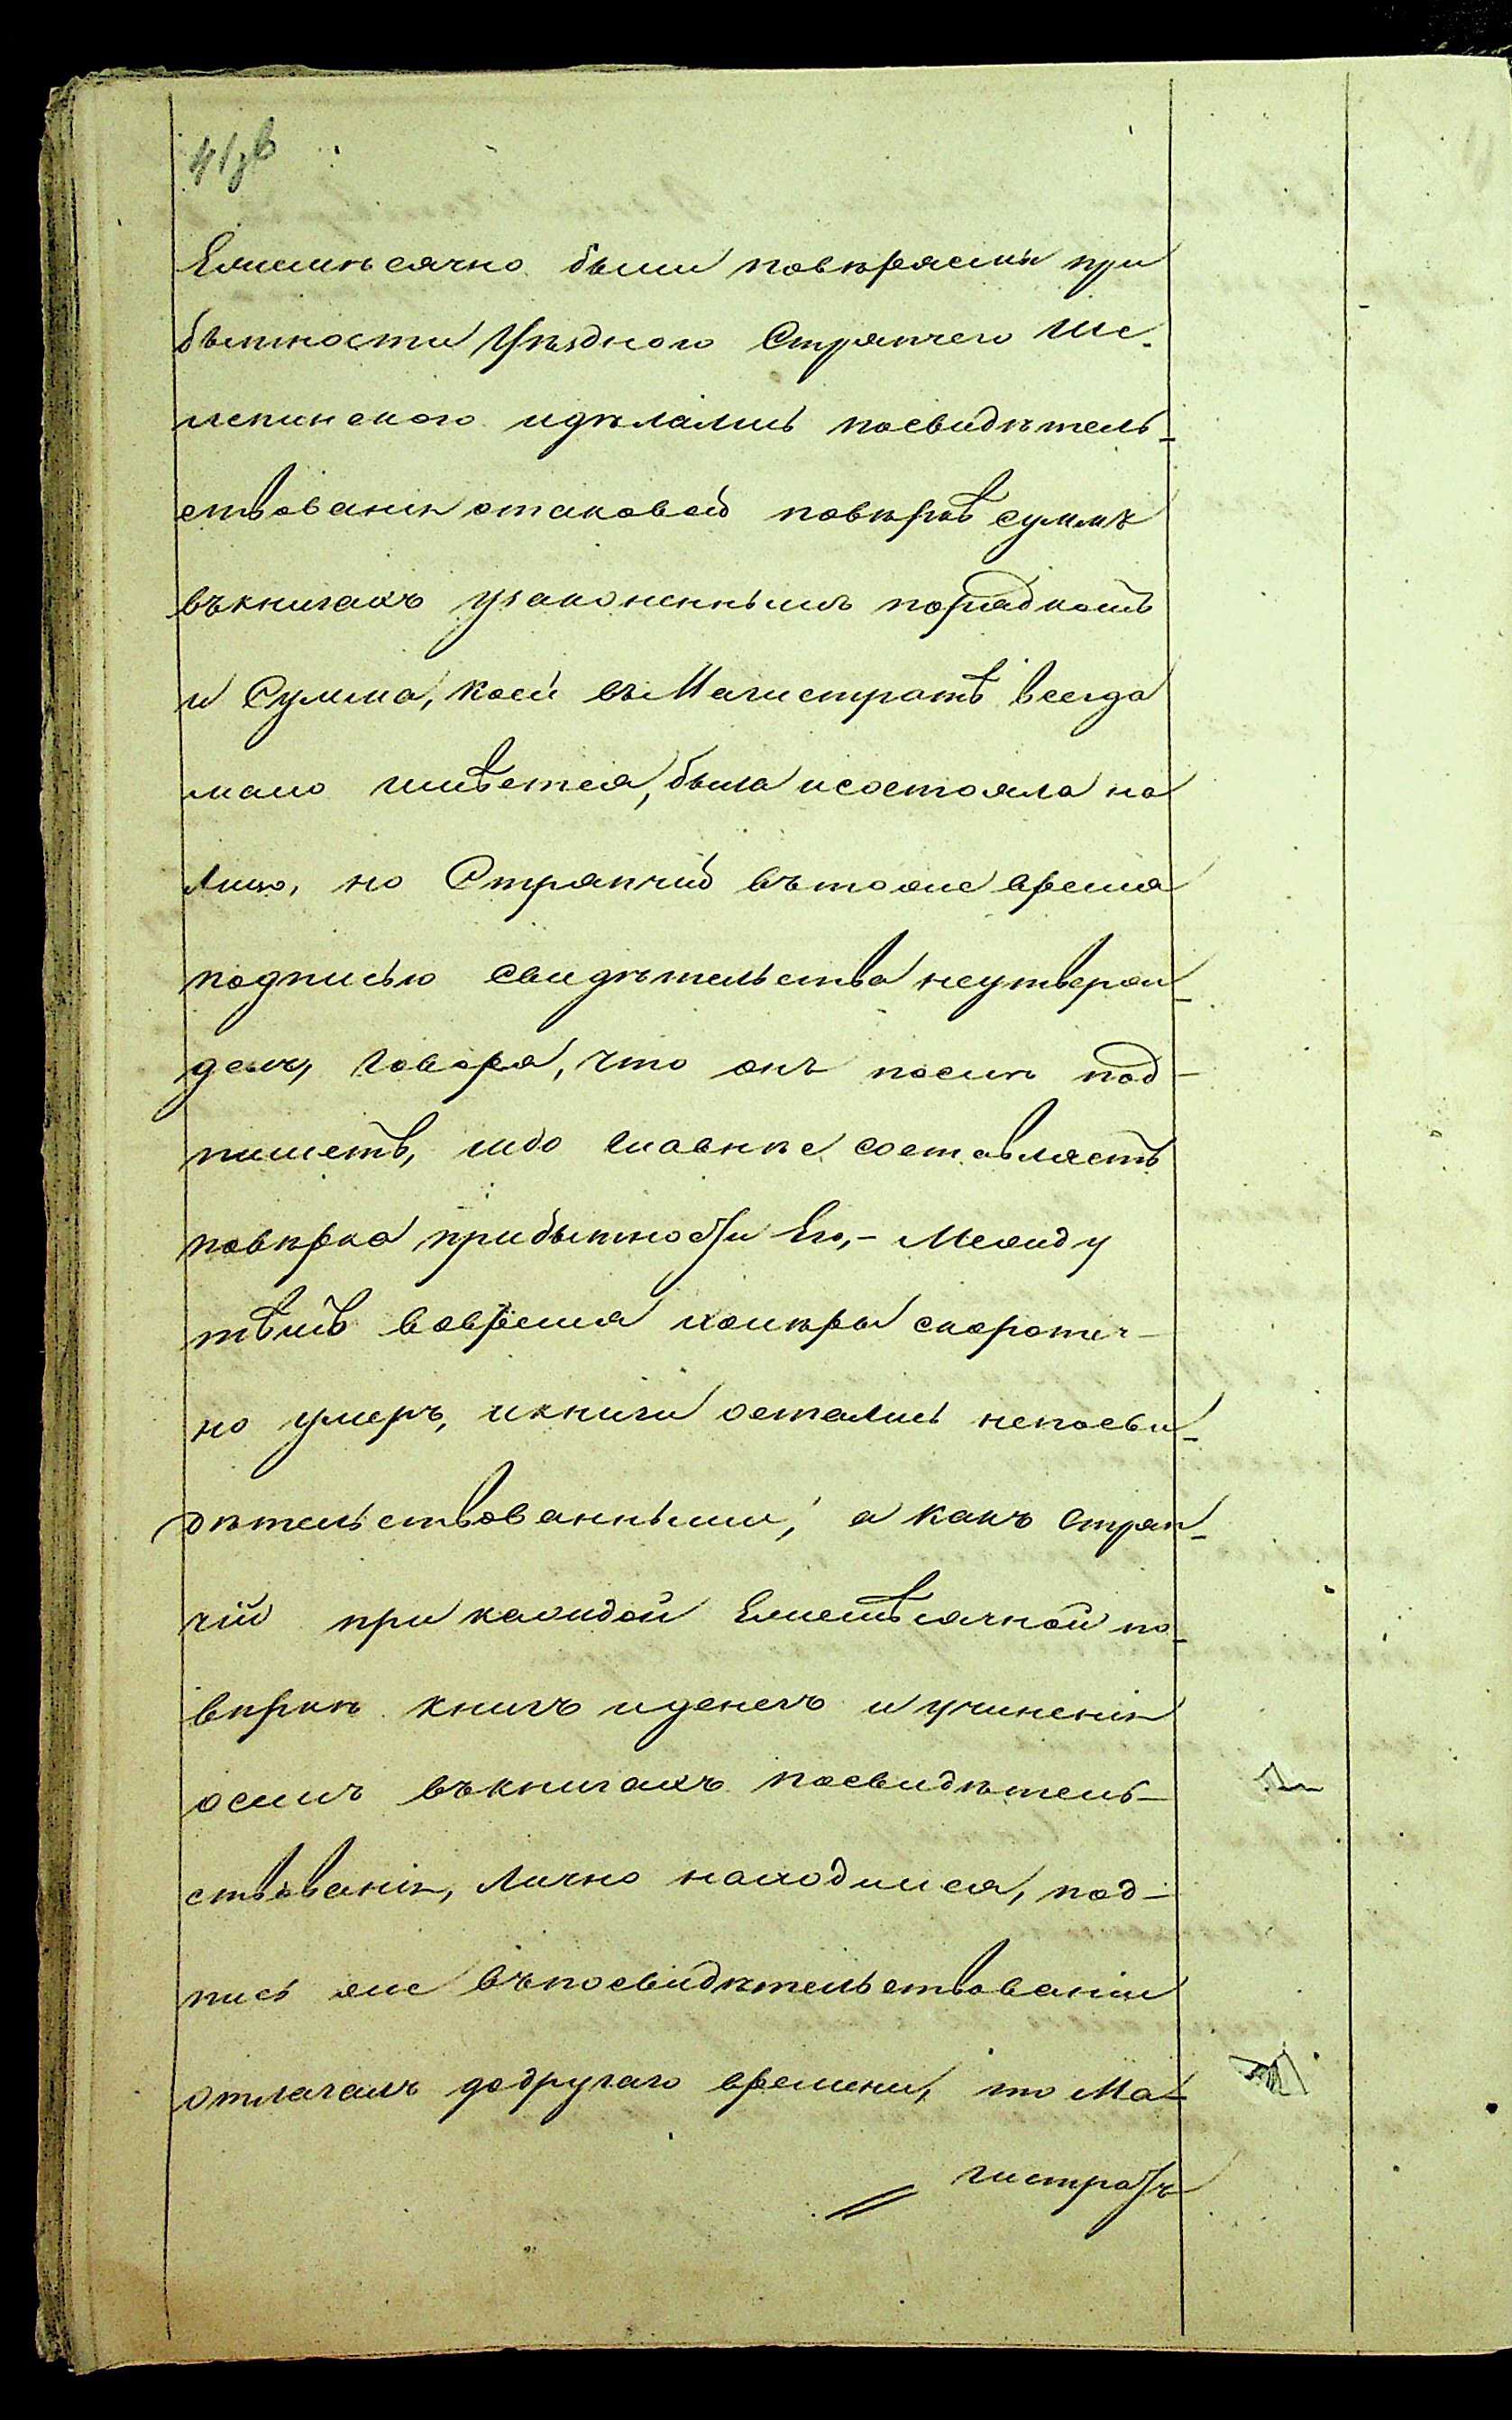 Ежемѣсячно были повѣряемы при
бытности Уѣзднаго Стряпчего Ше-
лепинского идѣлались посвидѣтель-
ствованіи отаковой повѣркѣ суммъ
въкнигахъ узаконеннымъ порядкомъ
и Сумма, коей въ Магистратѣ всегда
мало имѣется, была исостояла на
лицо, но Стряпчий въ тоже время
подписью свидѣтельства неутверж-
делъ, говоря, что онъ послѣ под-
пишетъ, ибо главнѣе составляетъ
повѣрка прибытности Его,- Между
тѣмъ вовремя холеры скоропич-
но умеръ, икниги остались непосви-
дѣтельствованными, а какъ Стряп-
чій при каждой Ежемѣсячной по-
вѣркѣ книгъ иденегъ и учиненіи
осемъ въкнигахъ посвидѣтель-
ствованіи, Лично находился, под-
пись же въпосвидѣтельствованіи
отлагалъ додругаго времени, то Ма-
гистратъ